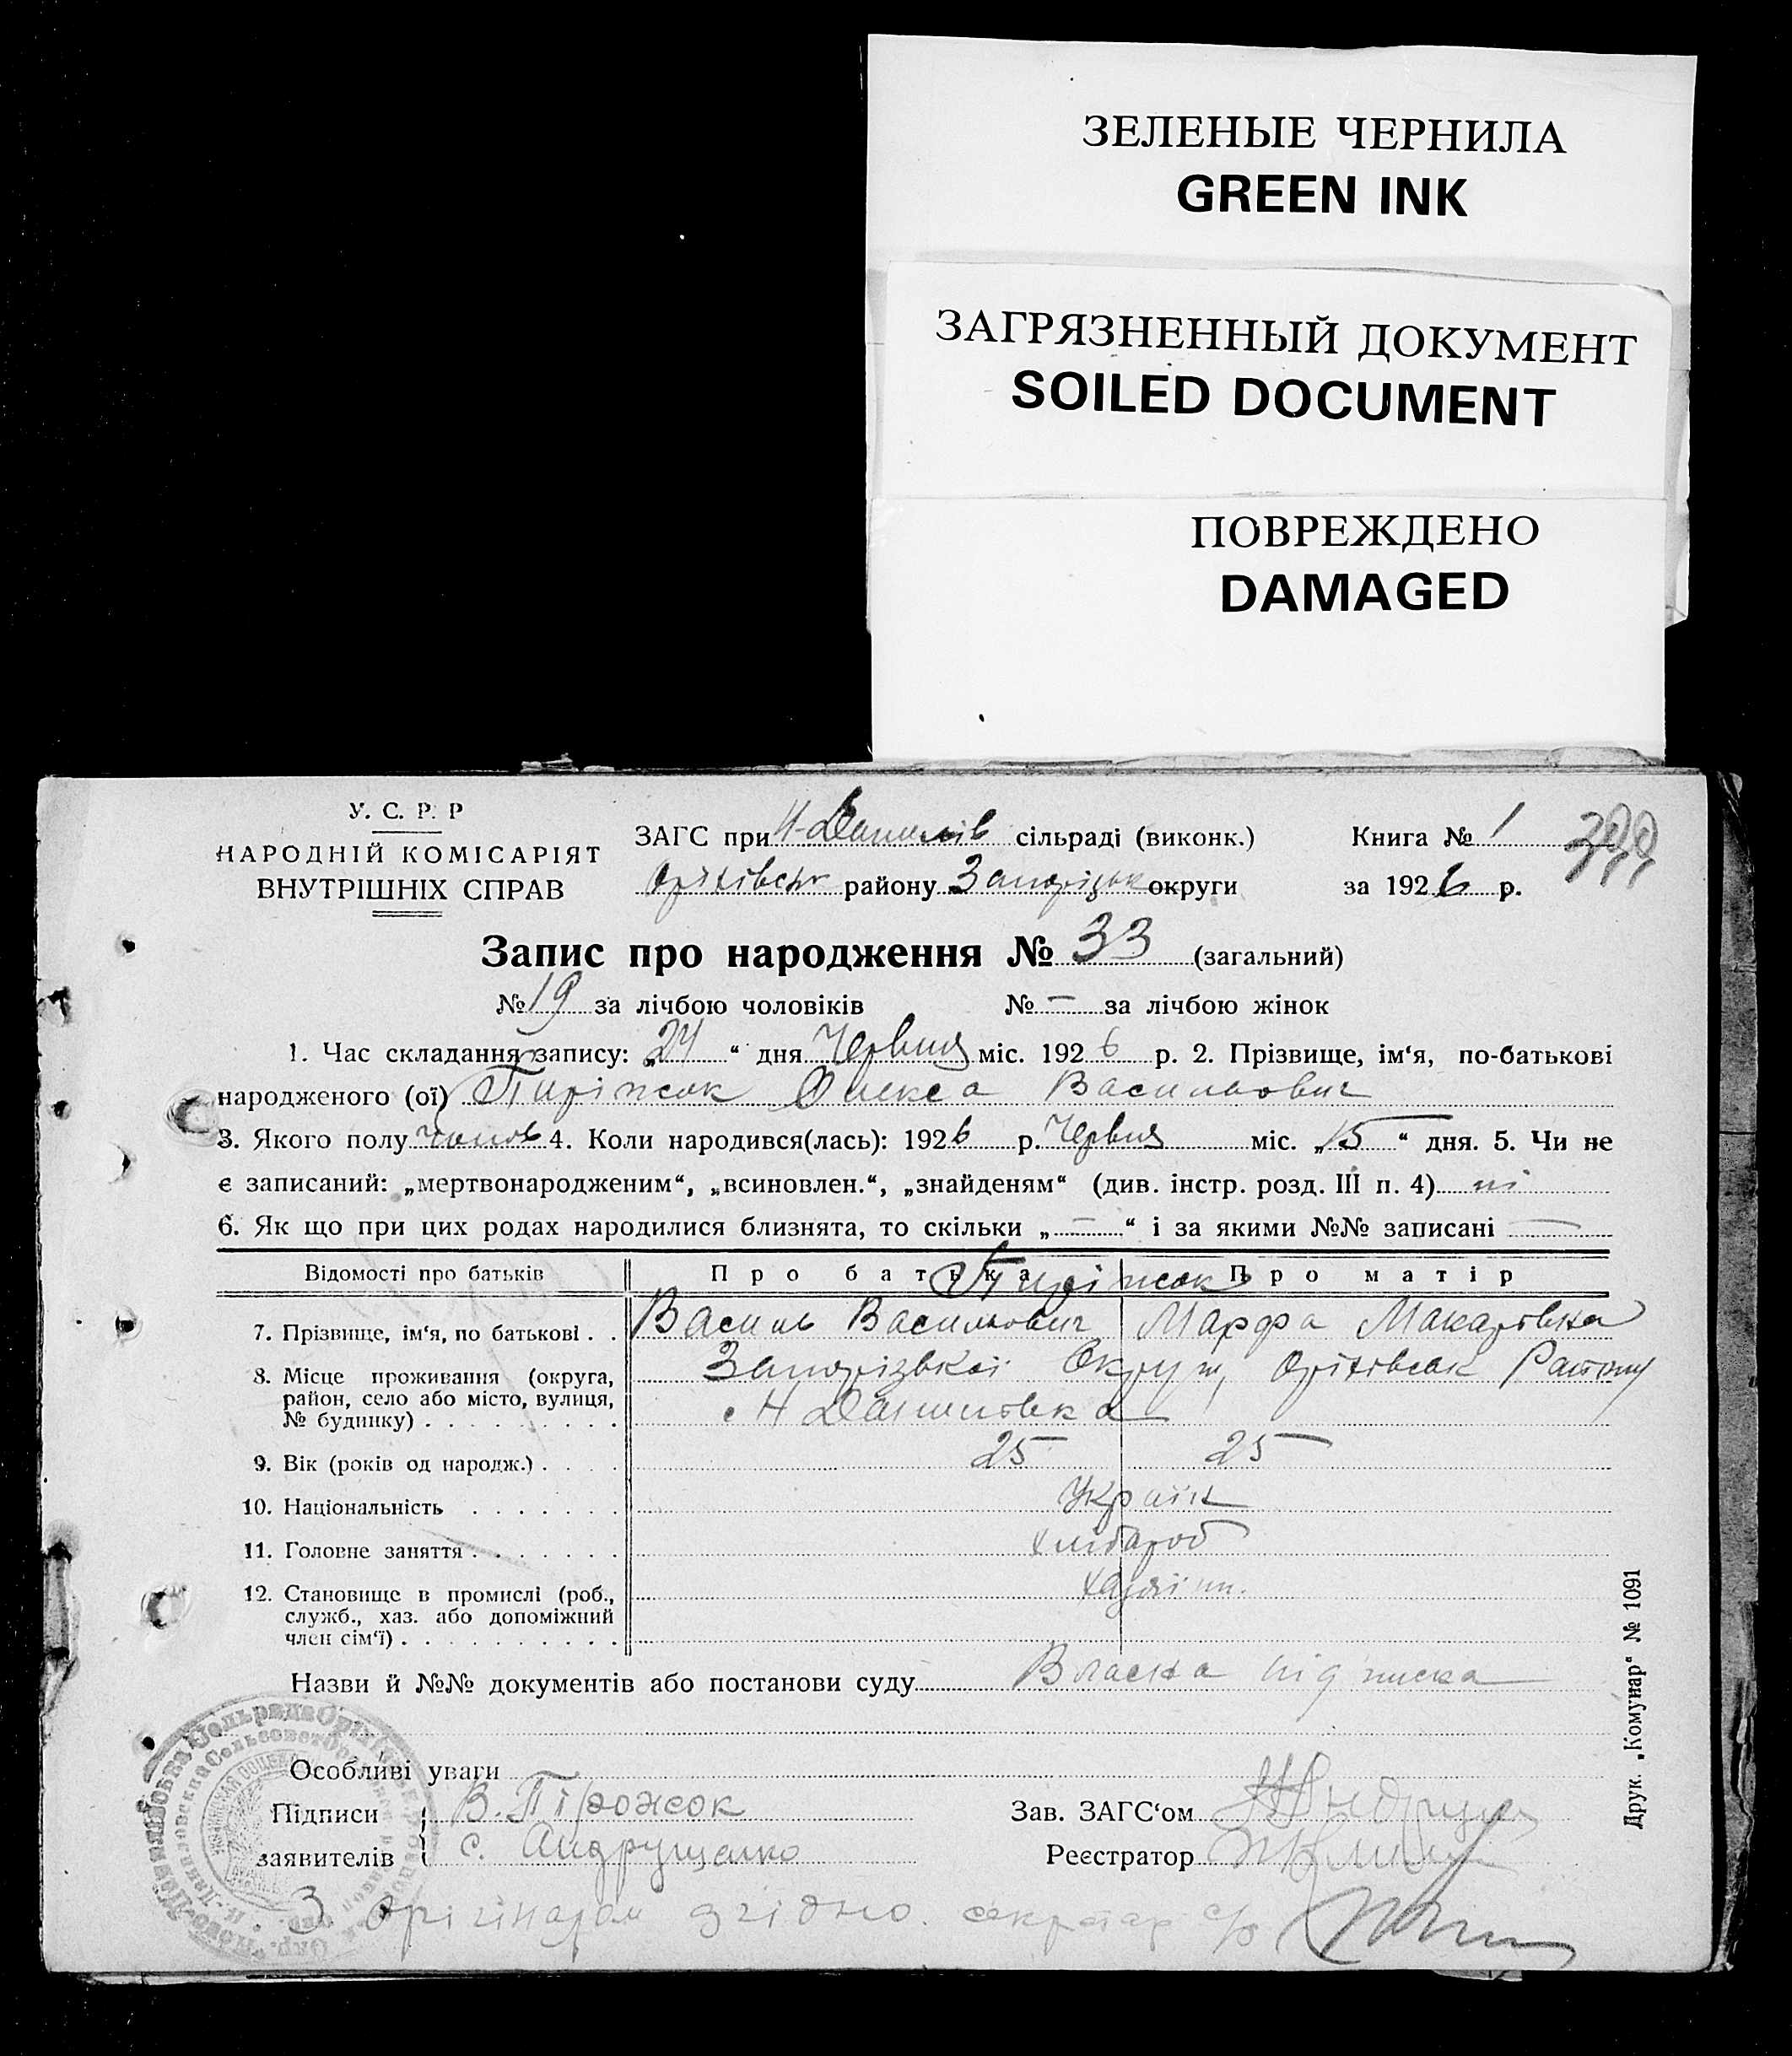 ЗЕЛЕНЫЕ ЧЕРНИЛА
GREEN INK
ЗАГРЯЗНЕННЫЙ ДОКУМЕНТ
SOILED DOCUMENT
ПОВРЕЖДЕНО
DAMAGED
У. С. Р. Р
НАРОДНІЙ КОМІСАРІЯТ
ВНУТРІШНІХ СПРАВ
ЗАГС при Н-Данилів сільраді (виконк.)
Оріхівськ району Запорізьк округи
Книга № 1
за 1926 р.
Запис про народження № 33 (загальний)
№ 19 за лічбою чоловіків № — за лічбою жінок
1. Час складання запису: „24“ дня Червня міс. 1926 р. 2. Прізвище, ім‘я, по-батькові
народженого (ої) Пиріжок Олекса Васильович
3. Якого полу чолов 4. Коли народився(лась): 1926 р. Червня міс. „15“ дня. 5. Чи не
є записаний: „мертвонародженим“, „всиновлен.“, „знайденям“ (див. інстр. розд. III п. 4) ні
6. Як що при цих родах народилися близнята, то скільки „—“ і за якими №№ записані —
Відомості про батьків Про батька Про матір
Пиріжок
7. Прізвище, ім‘я, по батькові . . Василь Васильович Марфа Макарівна
8. Місце проживання (округа, район, село або місто, вулиця, № будинку) Запорізької Округи, Оріхівськ Району
с Н Даниловка
9. Вік (років од народж.) 25 25
10. Національність Україн
11. Головне заняття хлібороб
12. Становище в промислі (роб., служб., хаз. або допоміжний член сім‘ї)
Назви й №№ документів або постанови суду Власна підписка
Особливі уваги
Підписи заявителів { В. Пірожок
с. Андрущенко
Зав. ЗАГС‘ом
Реєстратор
З орігіналом згідно. секретар с/р
Друк. „Комунар“ № 1091